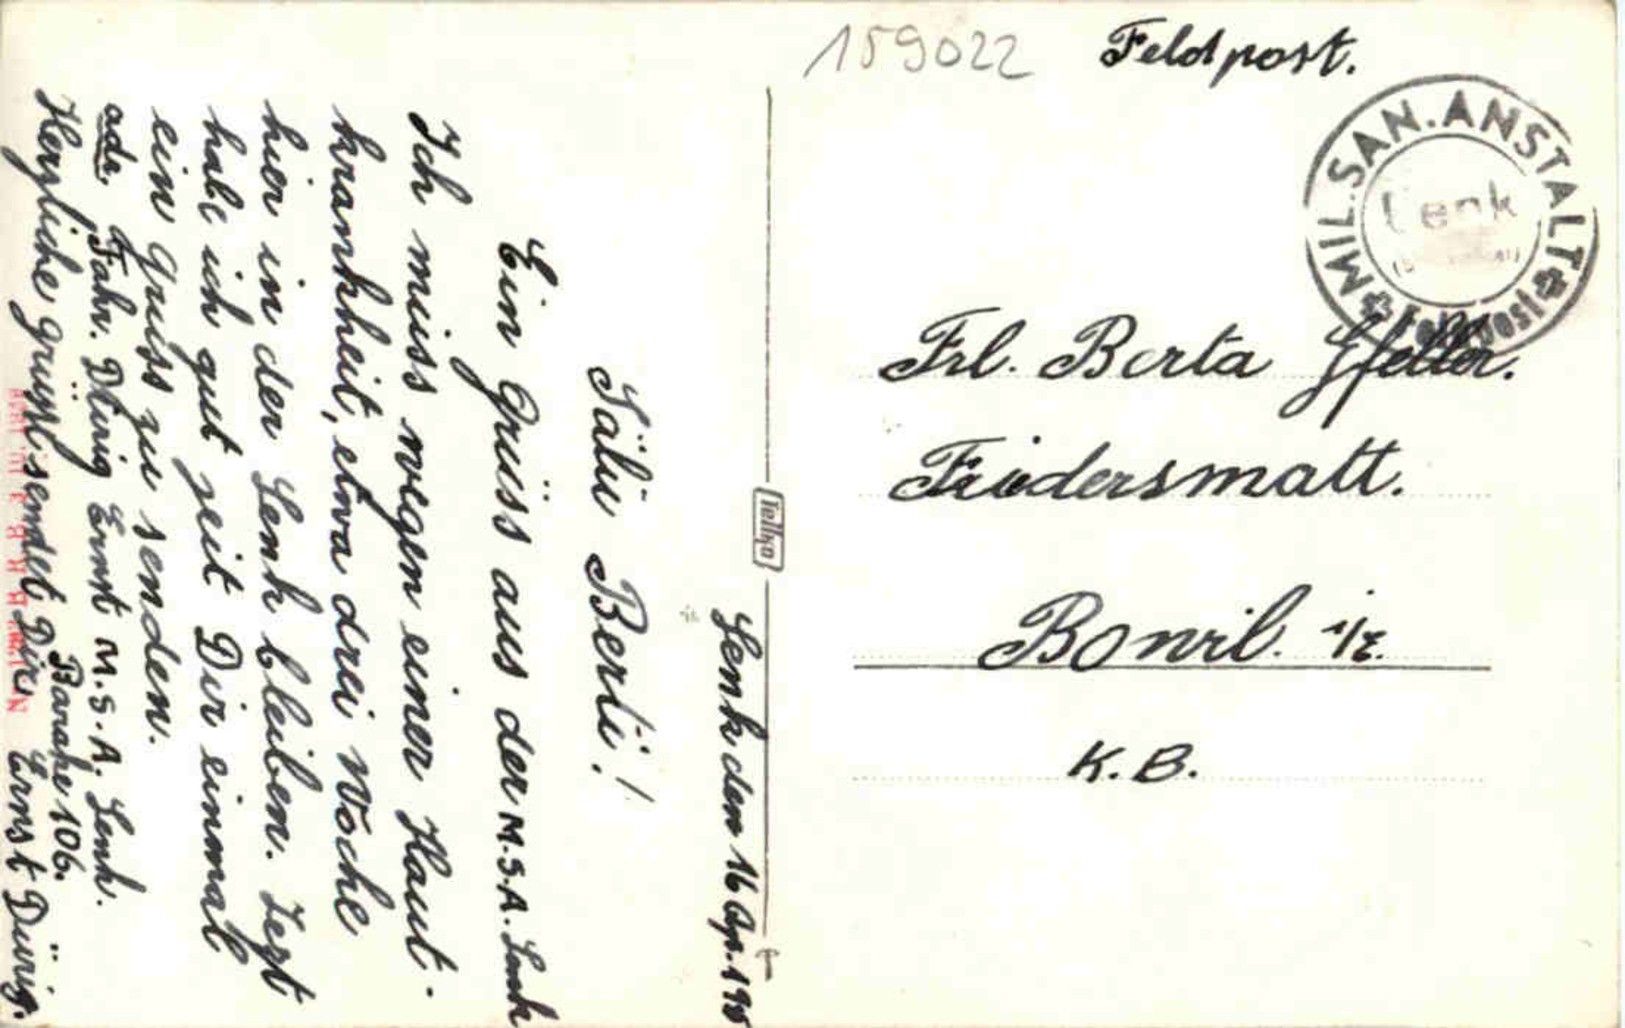 159022
Feldpost.
MIL. SAN. ANSTALT
Lenk
Feldpost
Frl. Berta Gfeller.
Friedersmatt.
Bowil. i/E.
K. B.
Fetzko
Lenk den 16 Ap. 19
Sälü Berti!
Ein Grüss aus der M.S.A. Lenk
Ich müss wegen einer Haut-
krankheit, etwa drei Woche
hier in der Lenk bleiben. Jezt
habe ich gut zeit Dir einmal
ein Grüss zu senden.
adr. Fahr. Dürig Ernst M.S.A. Lenk.
Barake 106.
Herzliche grüsst sendet Dir Ernst Dürig.